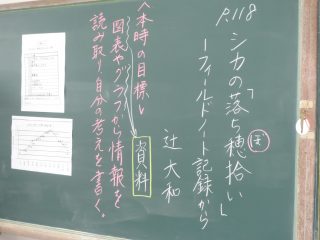 P.118
シカの「落ち穂拾い」
ーフィールドノート記録から
辻 大和
資料
<本時の目標>
図表やグラフから情報を
読み取り自分の考えを書く。